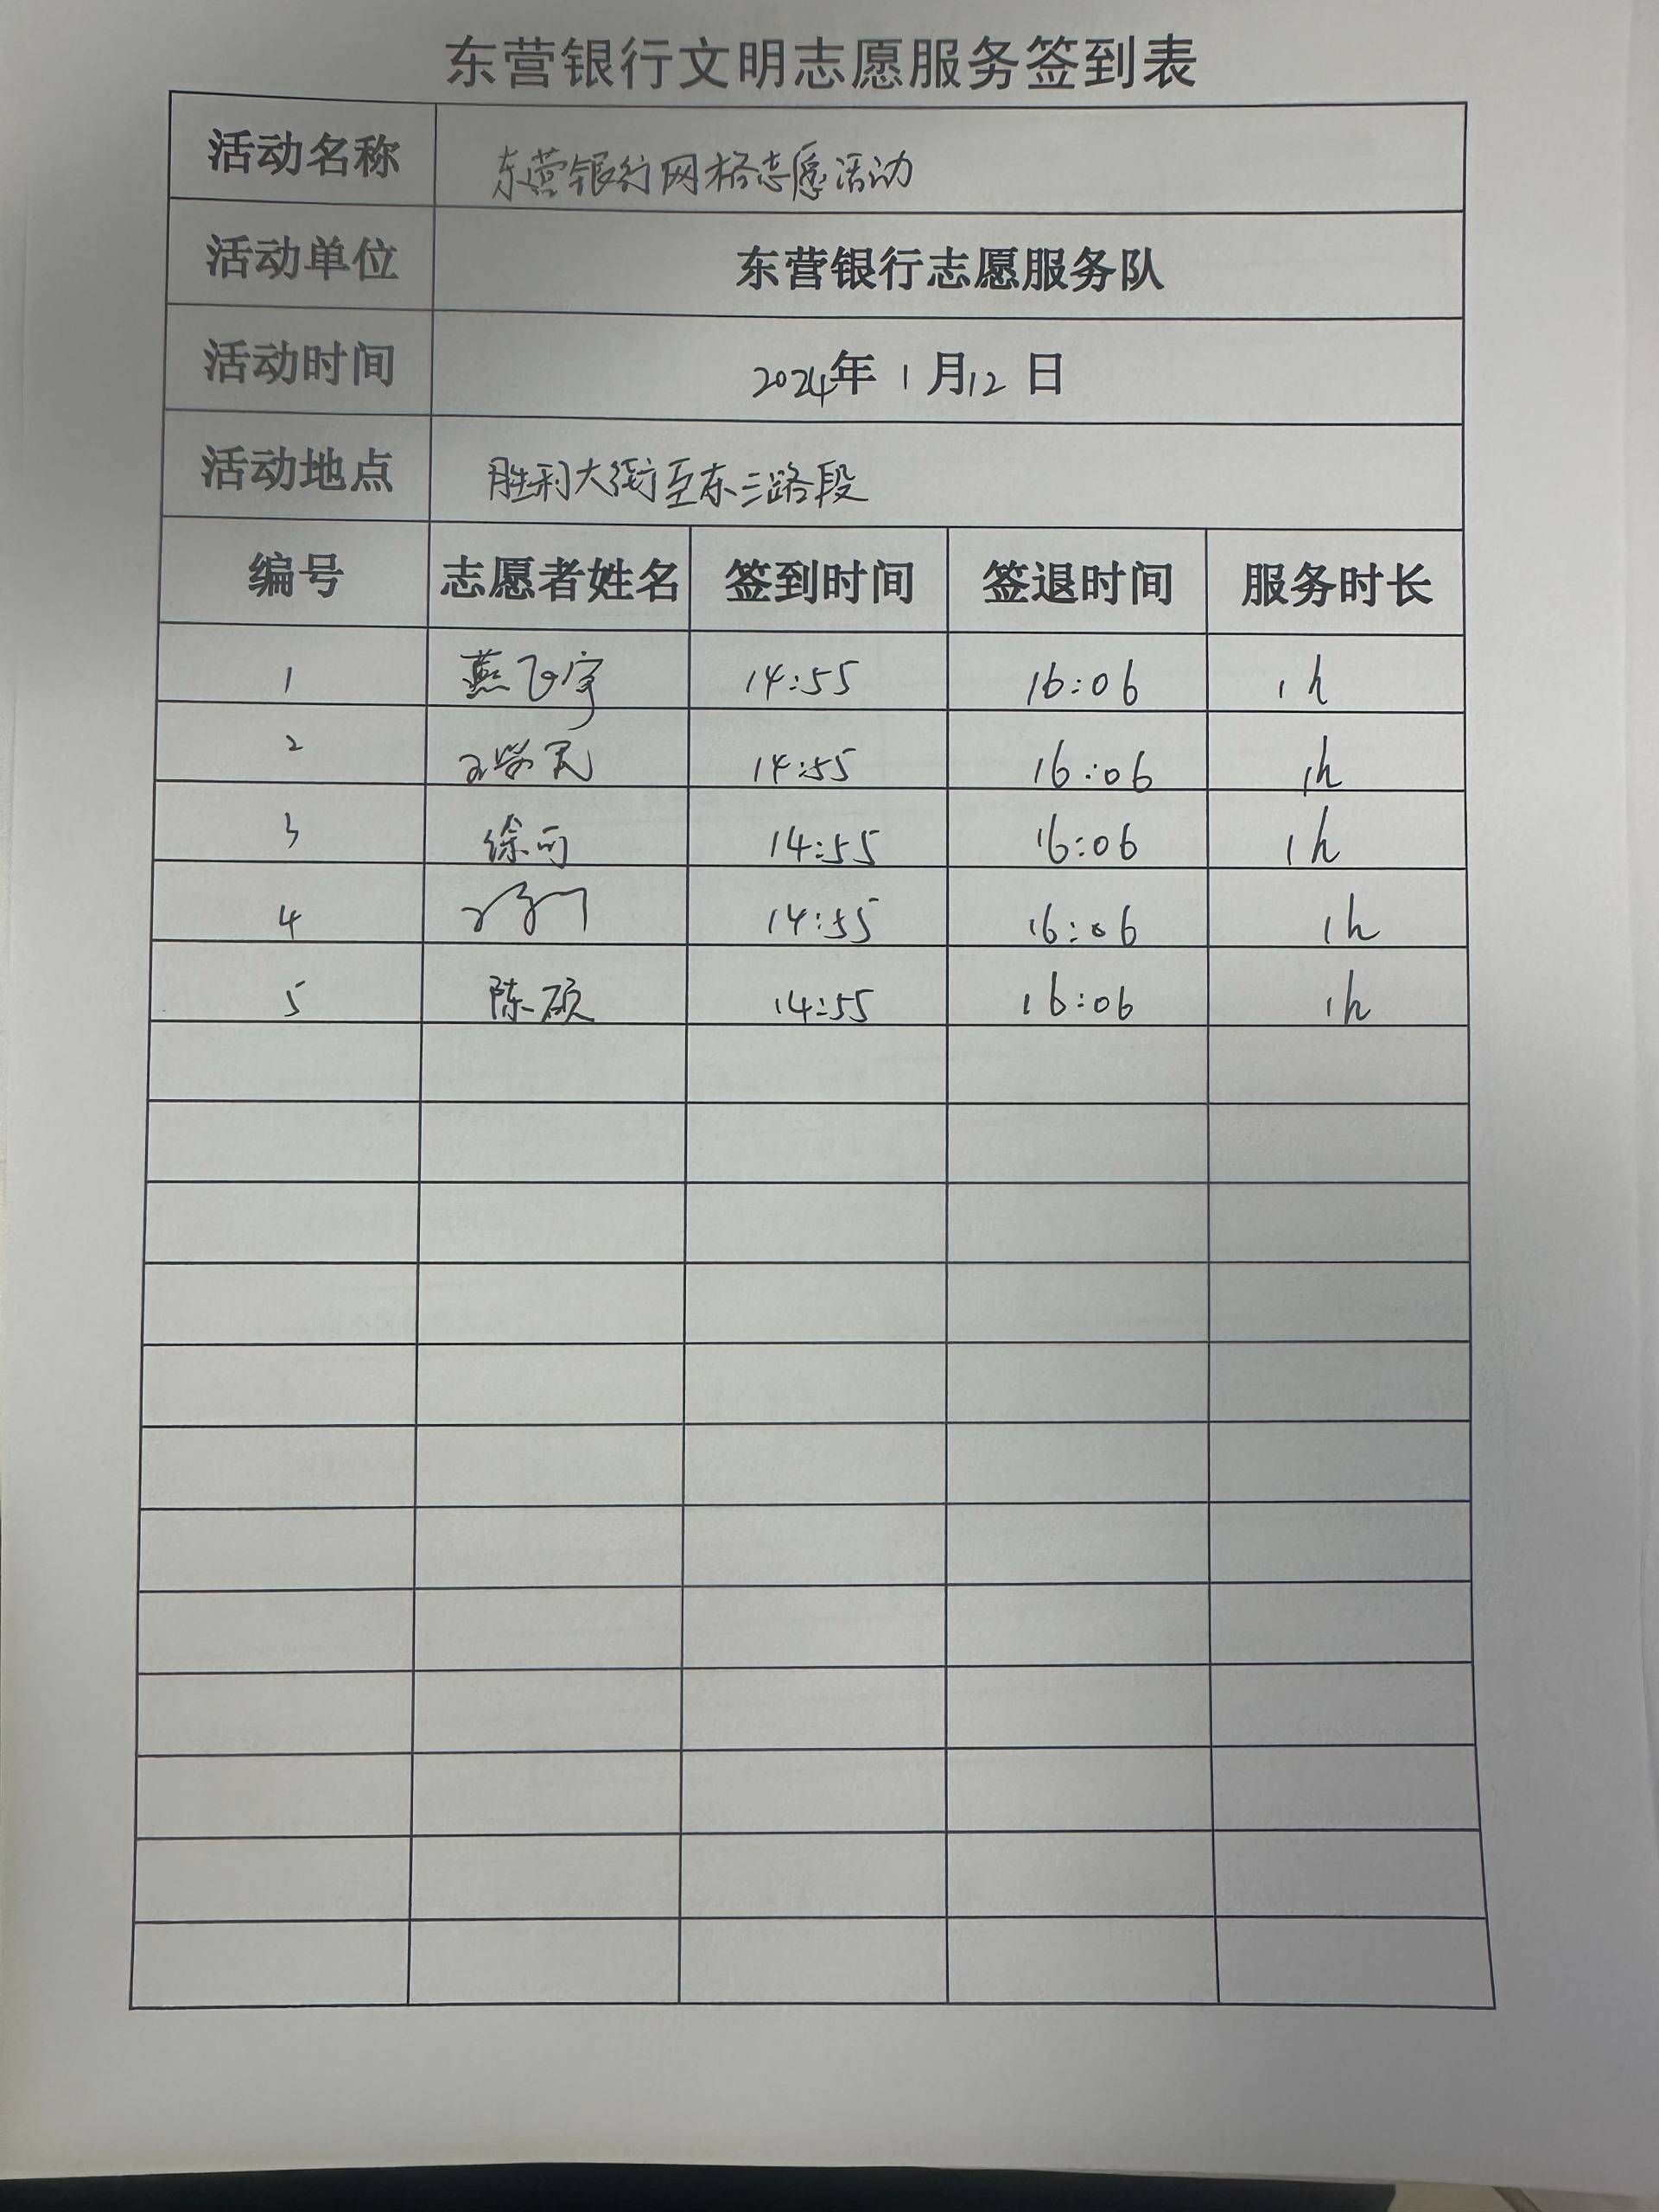 东营银行文明志愿服务签到表
活动名称 东营银行网格志愿活动
活动单位 东营银行志愿服务队
活动时间 2024年 1 月12 日
活动地点 胜利大街至东三路段
编号 志愿者姓名 签到时间 签退时间 服务时长
1 燕飞宇 14:55 16:06 1h
2 14:55 16:06 1h
3 徐可 14:55 16:06 1h
4 14:55 16:06 1h
5 陈硕 14:55 16:06 1h